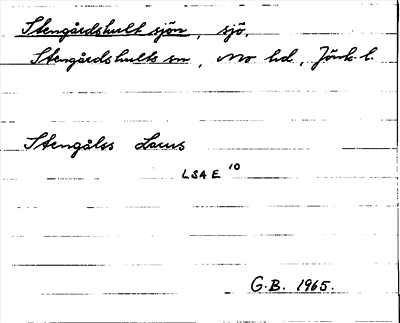 Stengårdshult sjön, sjö,
Stengårdshults sn, Mo hd, Jönk. l.
Stengålss Lacus
LSA E 10
G.B. 1965.